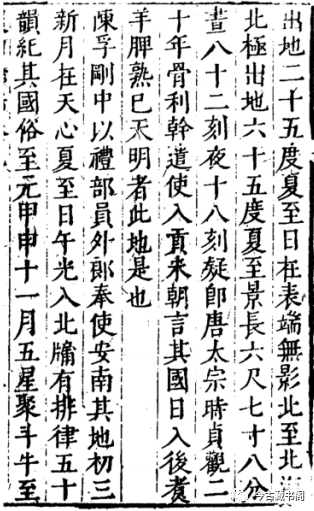 出地二十五度夏至日在表端無影此至北海
北極出地六十五度夏至景長六尺七寸八分
晝八十二刻夜十八刻疑卽唐太宗時貞觀二
十年骨利幹遣使入貢来朝言其國日入後煑
羊胛熟巳天明者此地是也
陳孚剛中以禮部員外郎奉使安南其地初三
新月在天心夏至日午光入北牖有排律五十
韻紀其國俗至元甲申十一月五星聚斗牛至
今古藏书阁